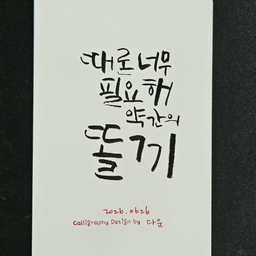 때론 너무
필요해
약간의
똘기
2026.0626
Calligraphy Design by 다운